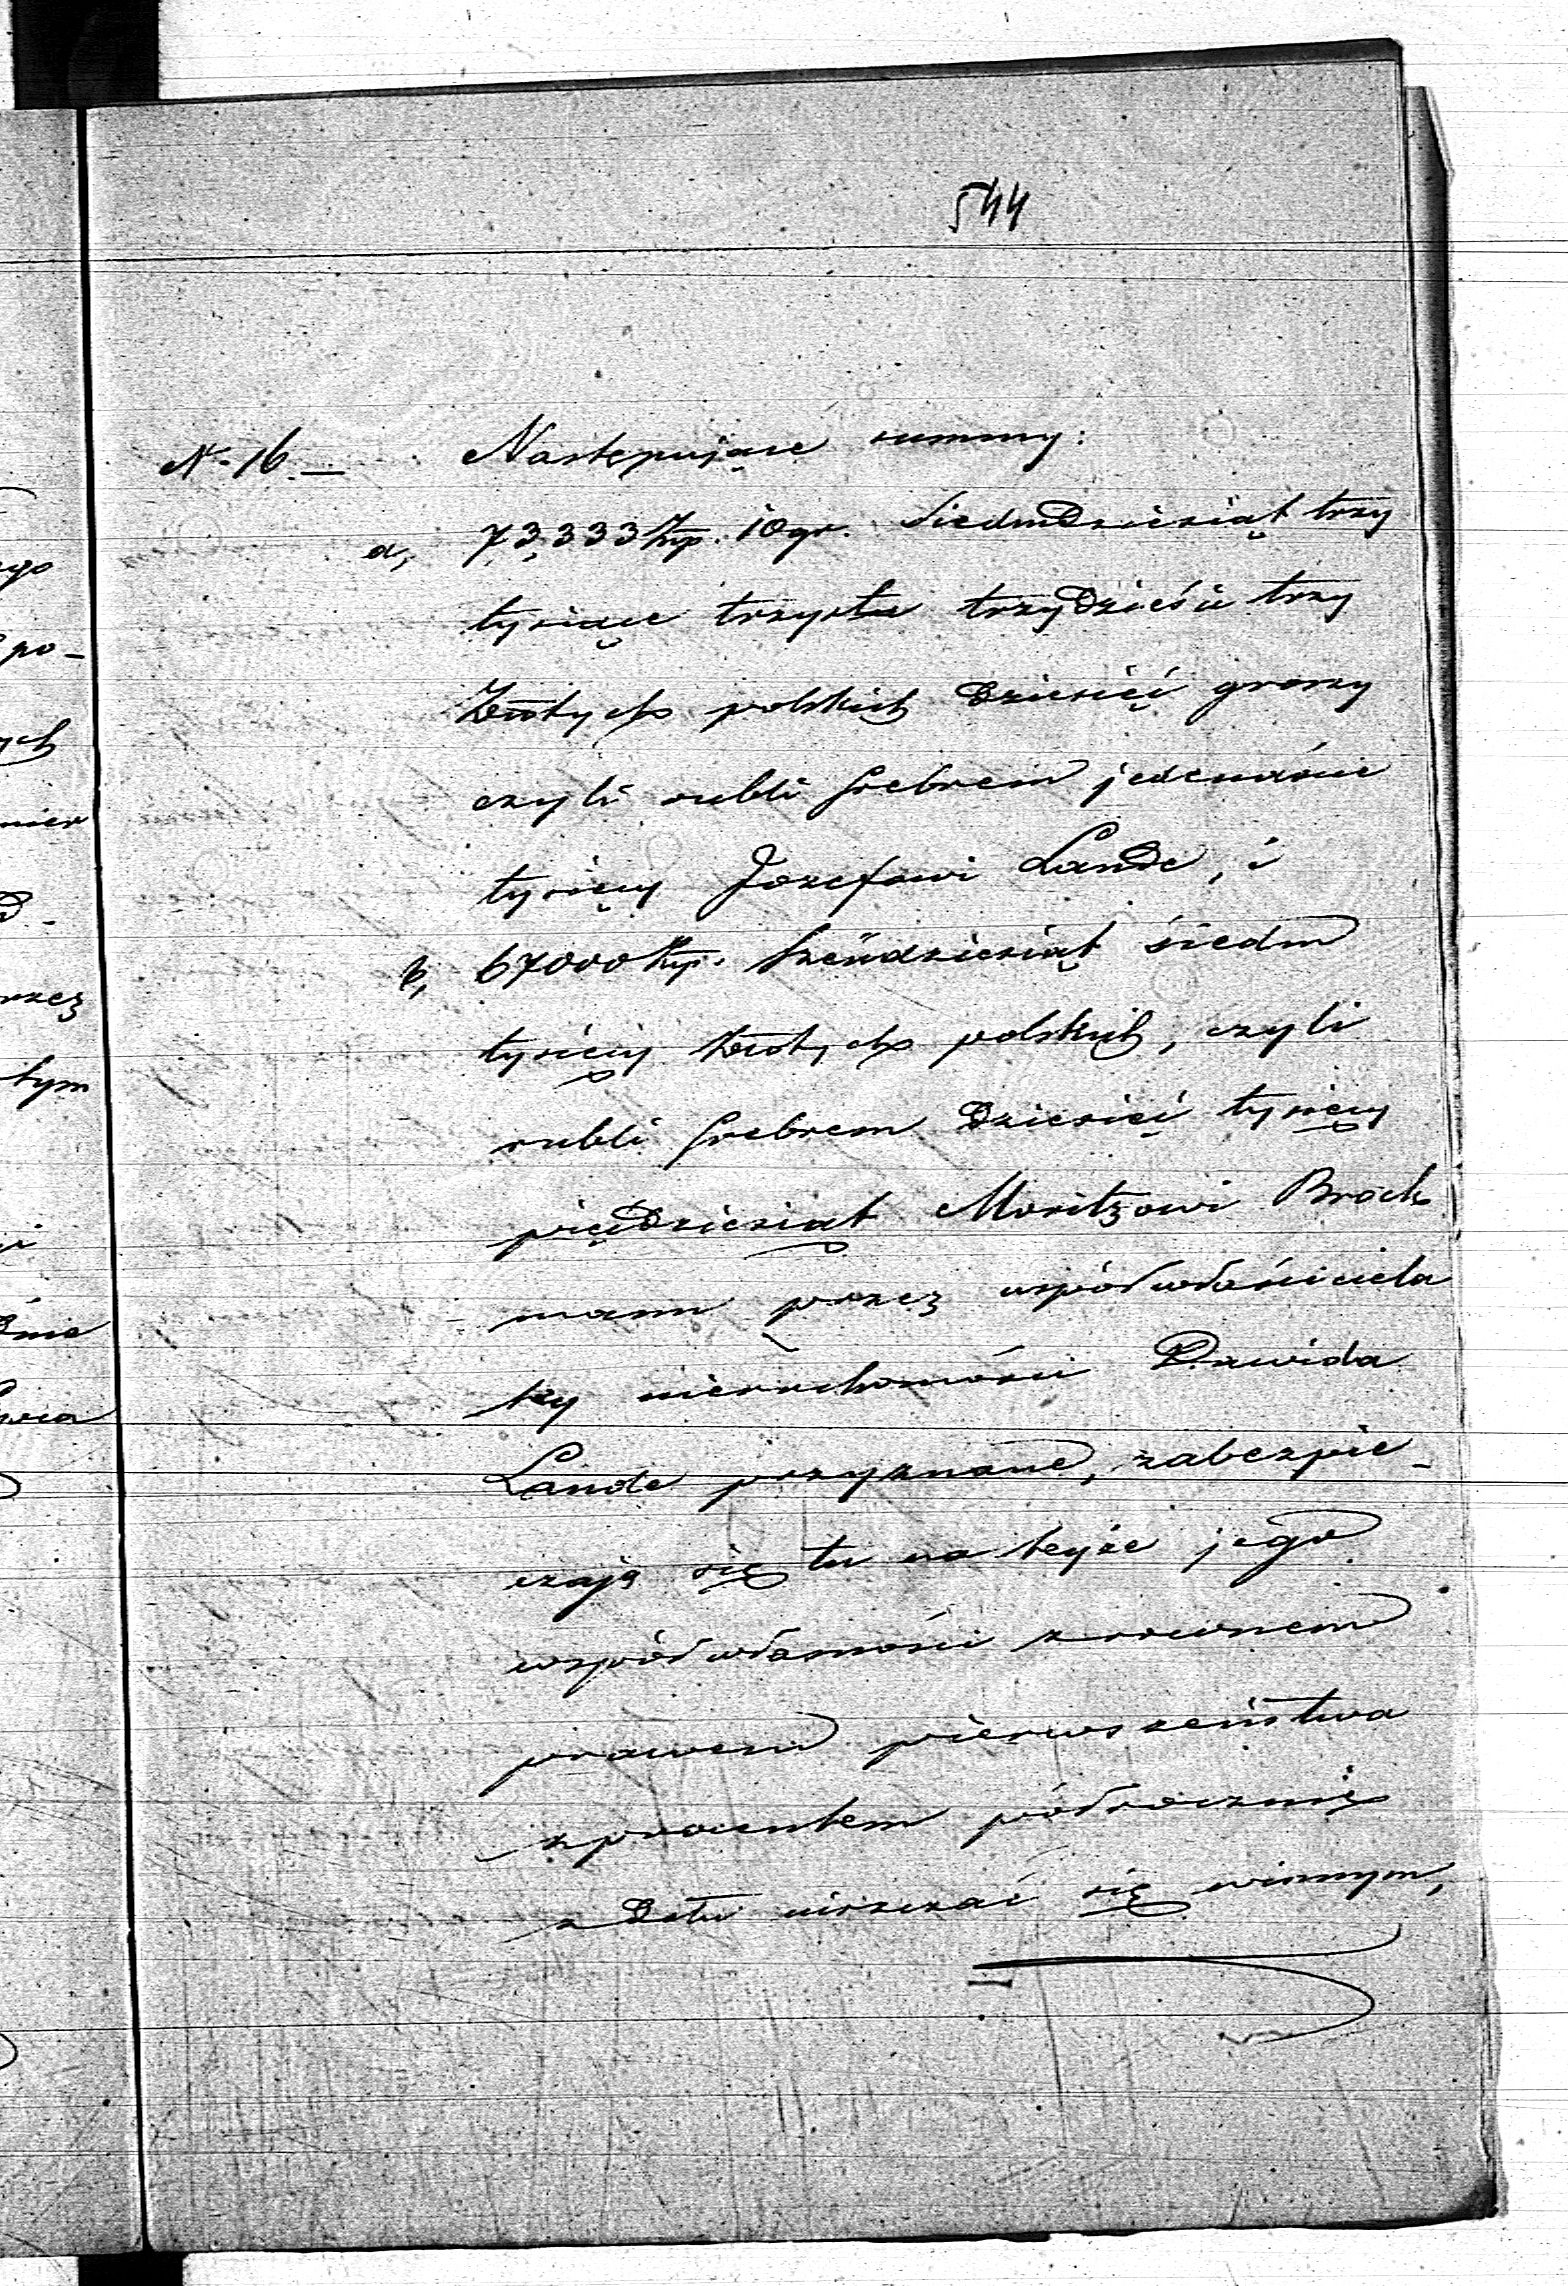 544
No 16 — Następujące summy:
a, 73,333 Złp. 10 gr. Siedmdziesiąt trzy
tysiące trzysta trzydzieści trzy
Złotych polskich dziesięć groszy
czyli rubli srebrem jedenaście
tysięcy Jozefowi Lande, i
b, 67000 Złp. sześćdziesiąt siedm
tysięcy złotych polskich, czyli
rubli srebrem dziesięć tysięcy
pięćdziesiąt Moritzowi Brock
mann przez współwłaściciela
tey nieruchomości Dawida
Lande przyznane, zabezpie-
czają się tu na teyże jego
współwłasności z rownem
prawem pierwszeństwa
z procentem półrocznie
z dołu uiszczać się winnym,
ygo
po-
ych
nier
rzez
tym